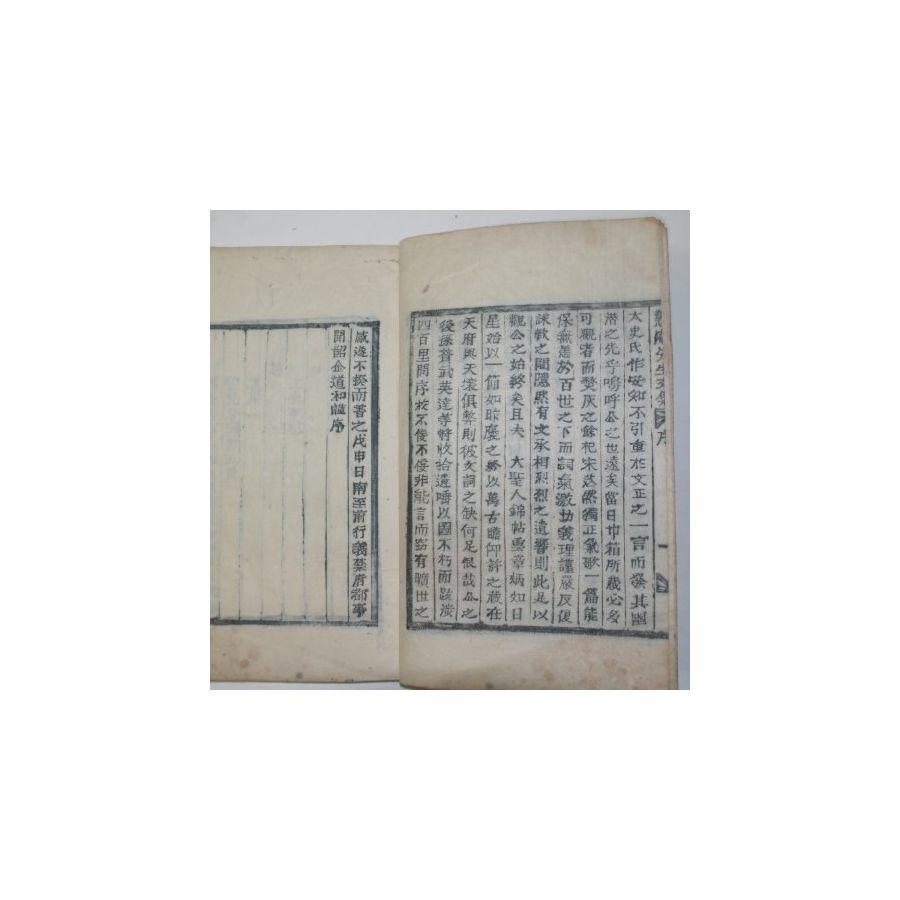 先生文集 序 一
太史氏作安知不引重於文正之一言而發其幽
潛之先乎嗚呼公之世遠矣當日巾箱所藏必多
可觀者而燹灰之餘杞宋蕩然獨正氣歌一篇能
保無恙於百世之下而詞氣激切義理謹嚴反復
詠歎之間隱然有文承相烈烈之遺響則此足以
觀公之始終矣且夫 大聖人錦帖雲章炳如日
星始以一節如昨慶之終以萬古瞻仰許之藏在
天府與天壤俱弊則彼文詞之缺何足恨哉公之
後孫贇武英達等將收拾遺唾以圖不朽而跋涉
四百里問序於不佞不佞非能言而竊有曠世之
感遂不揆而書之戊申日南至前行義禁府都事
聞韶金道和謹序